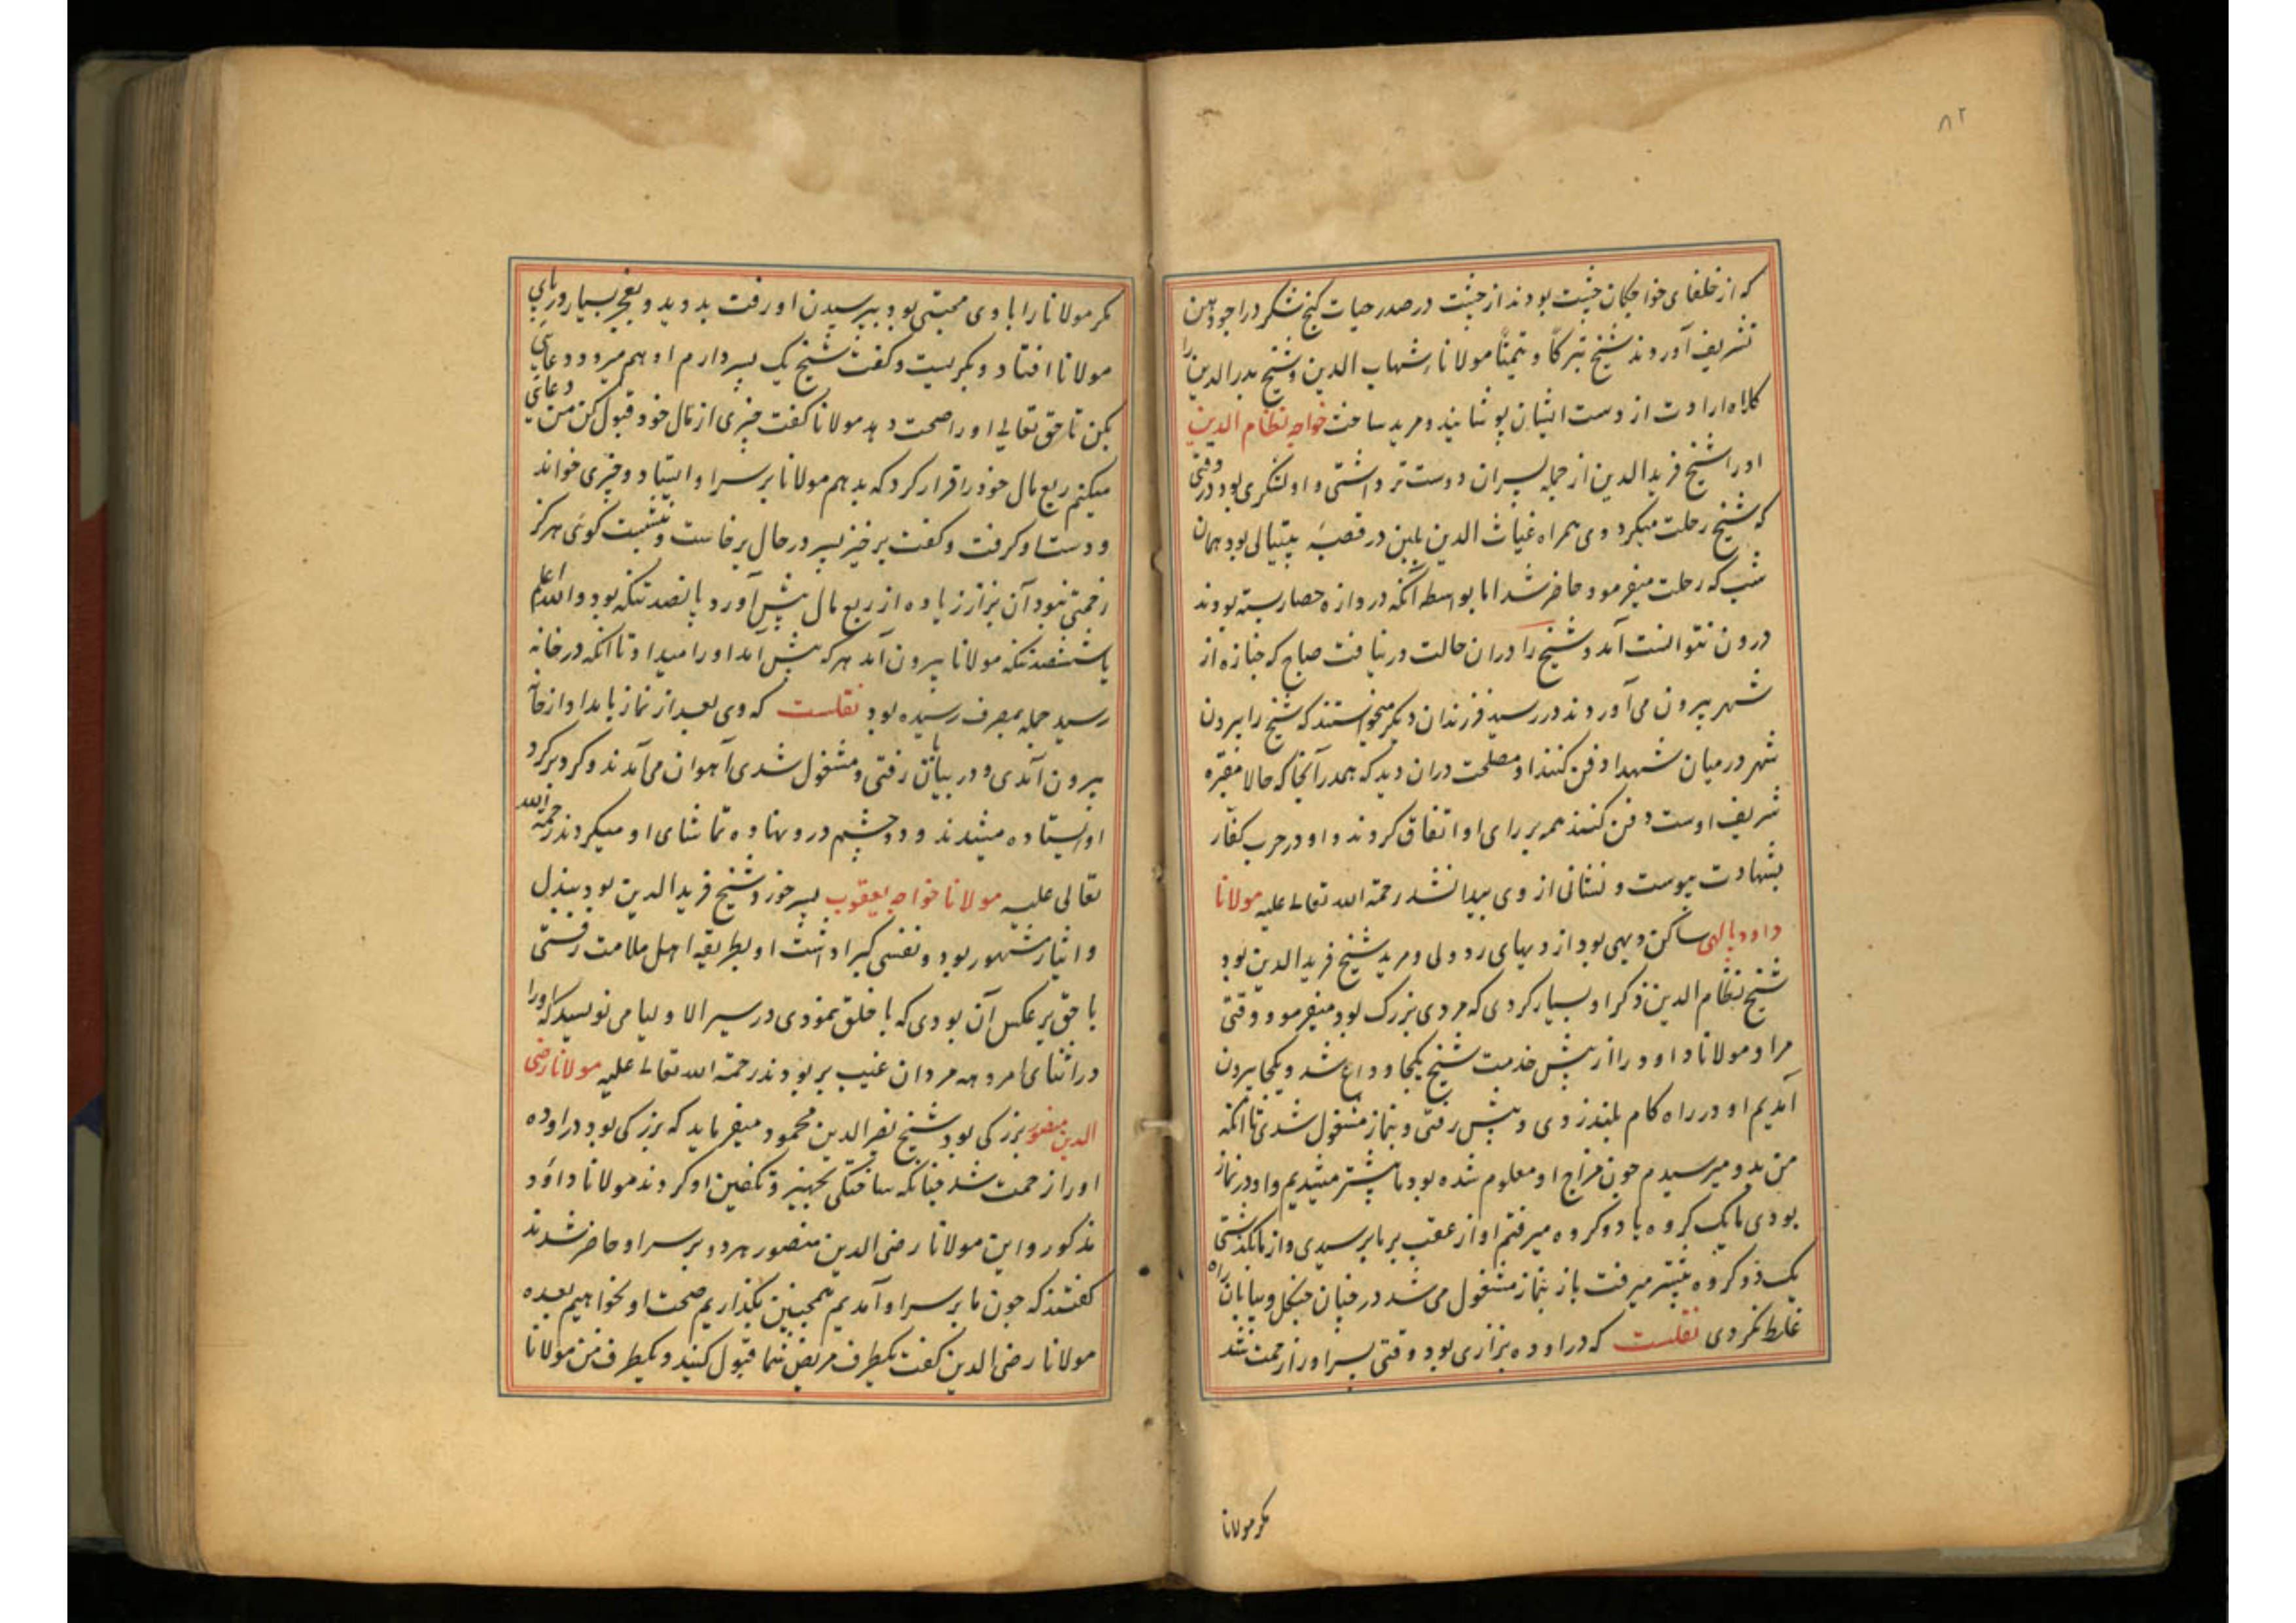 ۸۲
که از خلفای خواجکان چشت بودند از چشت در صدر حیات کنج شکر در اجودهن
تشریف آوردند شیخ تبرکاً و تیمناً مولانا شهاب الدین و شیخ بدر الدین را
کلاه ارادت از دست ایشان پوشانیده مرید ساخت خواجه نظام الدین
او را شیخ فرید الدین از جمله پسران دوست تر داشتی و او لشکری بود در وقتی
که شیخ رحلت میکرد وی همراه غیاث الدین بلبن در قصبهٔ پتیالی بود همان
شب که رحلت میفرمود حاضر شد اما بواسطه آنکه دروازه حصار بسته بودند
درون نتوانست آمد و شیخ را در ان حالت در نیافت صباح که جنازه از
شهر بیرون می آوردند در رسید فرزندان دیگر میخواستند که شیخ را بیرون
شهر در میان شهدا دفن کنند او مصلحت دران دید که همدر آنجا که حالا مقبره
شریف اوست دفن کنند همه بر رای او اتفاق کردند و او در حرب کفار
بشهادت پیوست و نشانی از وی پیدا نشد رحمة الله تعالے علیه مولانا
داود پالهی ساکن دیهی بود از دیهای ردولی و مرید شیخ فرید الدین بود
شیخ نظام الدین ذکر او بسیار کردی که مردی بزرک بود میفرمود وقتی
مرا و مولانا داود را از پیش خدمت شیخ یکجا وداع شد و یکجا بیرون
آمدیم او در راه کام بلند زدی و پیش رفتی و بنماز مشغول شدی تا آنکه
من بدو میرسیدم چون مزاج او معلوم شده بود ما پیشتر میشدیم و او در نماز
بودی ما یک کروه یا دو کروه میرفتم او از عقب بر ما برسیدی و از ما بکذشتی
یک دو کروه پیشتر میرفت باز بنماز مشغول می شد در چنان جنکل و بیابان راه
غلط نکردی نقلست که در اوده بزازی بود وقتی پسر او را زحمت شد
مکر مولانا
مکر مولانا را با وی محبتی بود بپرسیدن او رفت بدوید و بعجز بسیار در پای
مولانا افتاد و بکریست و کفت شیخ یک پسر دارم او هم میرود دعای
بکن تا حق تعالے او را صحت دهد مولانا کفت چیزی از مال خود قبول کن من دعای
میکنم ربع مال خود را قرار کرد که بدهم مولانا بر سر او ایستاد و چیزی خواند
و دست او کرفت و کفت برخیز پسر در حال برخاست و بنشست کوئی هرکز
زحمتی نبود آن بزاز زیاده از ربع مال پیش آورد پانصد تنکه بود والله اعلم
یا ششصد تنکه مولانا بیرون آمد هر که پیش آمد او را میداد تا آنکه در خانه
رسید جمله بمصرف رسیده بود نقلست که وی بعد از نماز بامداد از خانه
بیرون آمدی و در بیابان رفتی و مشغول شدی آهوان می آمدند و کرد بر کرد
او ایستاده میشدند و دو چشم در و نهاده تماشای او میکردند رحمة الله
تعالی علیه مولانا خواجه یعقوب پسر خورد شیخ فرید الدین بود ببذل
و ایثار مشهور بود و نفسی کیرا داشت او بطریقه اهل ملامت رفتی
با حق بر عکس آن بودی که با خلق نمودی در سیر الاولیا می نویسد که او را
در اثنای امروهه مردان غیب بربودند رحمة الله تعالے علیه مولانا رضی
الدین منصور بزرکی بود شیخ نصیر الدین محمود میفرماید که بزرکی بود در اوده
او را زحمت شد چنانکه ساختکی تجهیز و تکفین او کردند مولانا داؤد
مذکور و این مولانا رضی الدین منصور هر دو بر سر او حاضر شدند
کفتند که چون ما بر سر او آمدیم همچنین بکذاریم صحت او بخواهیم بعده
مولانا رضی الدین کفت یکطرف مریض شما قبول کنید و یکطرف من مولانا